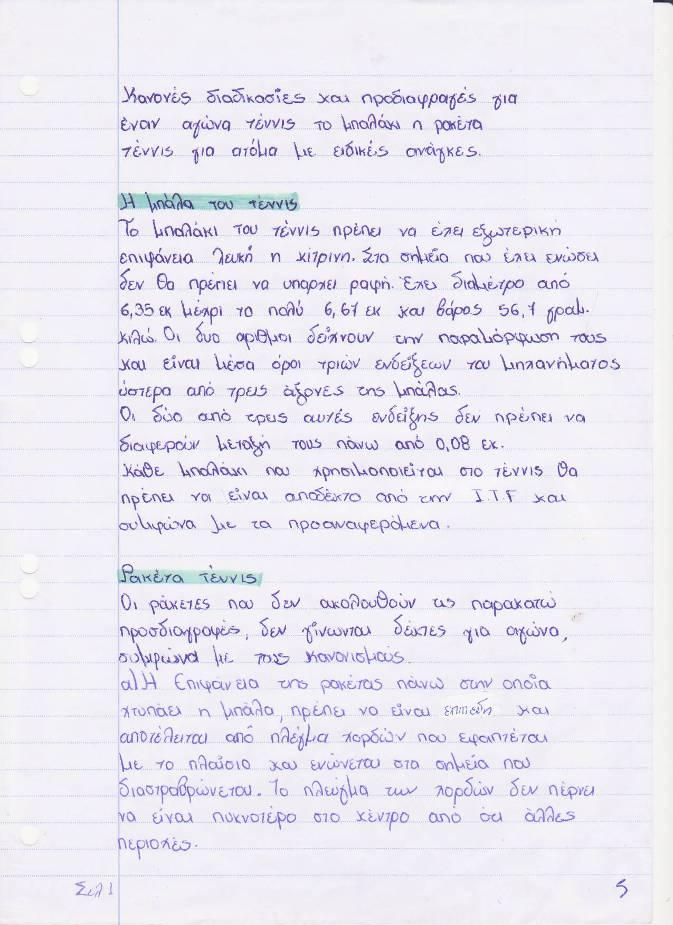 Κανονές διαδικασίες και προδιαφραγές για
έναν αγώνα τέννις το μπαλάκι η ρακέτα
τέννις για ατόμα με ειδικές ανάγκες.
Η μπάλα του τέννις
Το μπαλάκι του τέννις πρέπει να έχει εξωτερική
επιφάνεια λευκή η κίτρινη. Στα σημεία που έχει ενώσει
δεν θα πρέπει να υπάρχει ραφή. Έχει διαμέτρο από
6,35 εκ μέχρι το πολύ 6,67 εκ και βάρος 56,7 γραμ.
κιλώ. Οι δυο αριθμοι δείχνουν την παραμόρφωση τους
και είναι μέσα όροι τριών ενδείξεων του μηχανήματος
ύστερα από τρεις άξονες της μπάλας.
Οι δύο από τρεις αυτές ενδείξης δεν πρέπει να
διαφερούν μεταξή τους πάνω από 0,08 εκ.
Κάθε μπαλάκι που χρησιμοποιείται στο τέννις θα
πρέπει να είναι αποδέκτο από την I.T.F και
συμφώνα με τα προαναφερόμενα.
Ρακέτα τέννις
Οι ράκετες που δεν ακολουθούν τις παρακατώ
προσδιαγραφές, δεν γίνωνται δέκτες για αγώνα,
συμφώνα με τους κανονισμούς.
α) Η Επιφάνεια της ρακέτας πάνω στην οποία
χτυπάει η μπάλα, πρέπει να είναι επιπεδη και
αποτέλειται από πλέγμα χορδών που εφαπτέται
με το πλαίσιο και ενώνεται στα σημεία που
διαστραβρώνεται. Το πλεύγμα των χορδών δεν πέρνει
να είναι πυκνοτέρο στο κέντρο από ότι άλλες
περιοχές.
Σελ 1
5